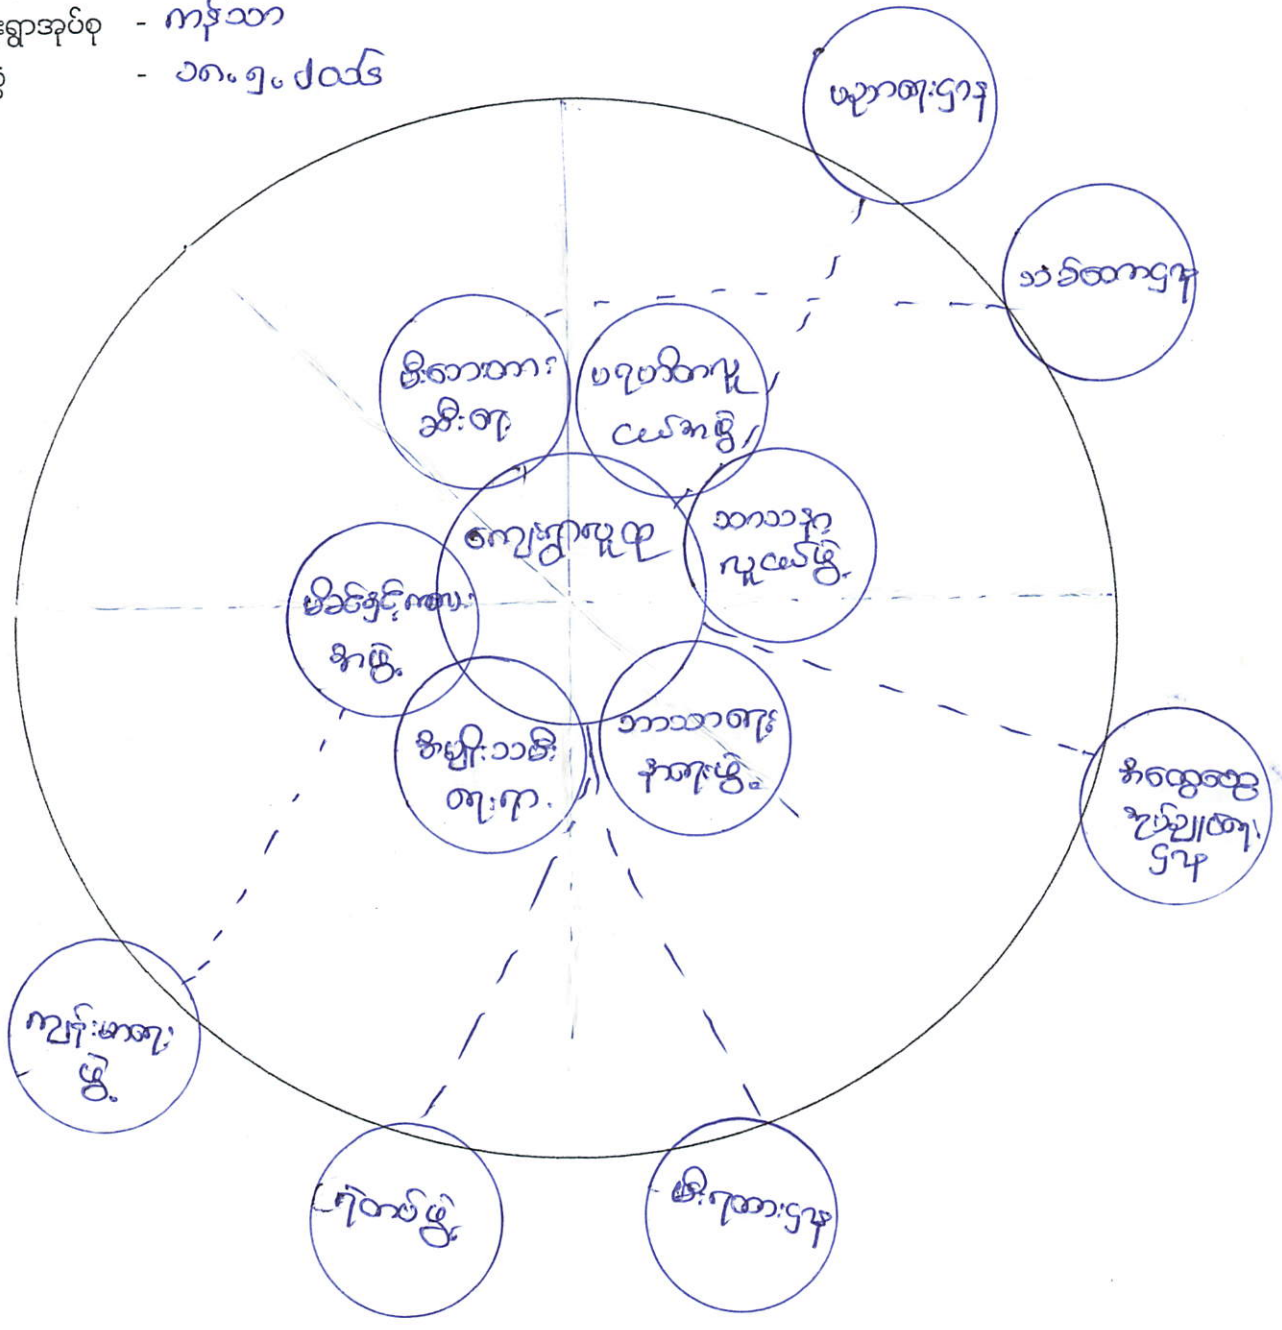 းရွာအုပ်စု - ကန်သာ
- ၁၈.၅.၂၀၁၆
ပညာရေးဌာန
သစ်တောဌာန
မီးဘေးတား
ဆီးရေး
ပရဟိတလူ
ငယ်အဖွဲ့
ကျေးရွာလူထု
သာသနာ့
လူငယ်ဖွဲ့
မိခင်နှင့်ကလေး
အဖွဲ့
အမျိုးသမီး
ရေးရာ
ဘာသာရေး
နာရေးဖွဲ့
အထွေထွေ
အုပ်ချုပ်ရေး
ဌာန
ကျန်းမာရေး
ဖွဲ့
ရဲတပ်ဖွဲ့
မီးရထားဌာန